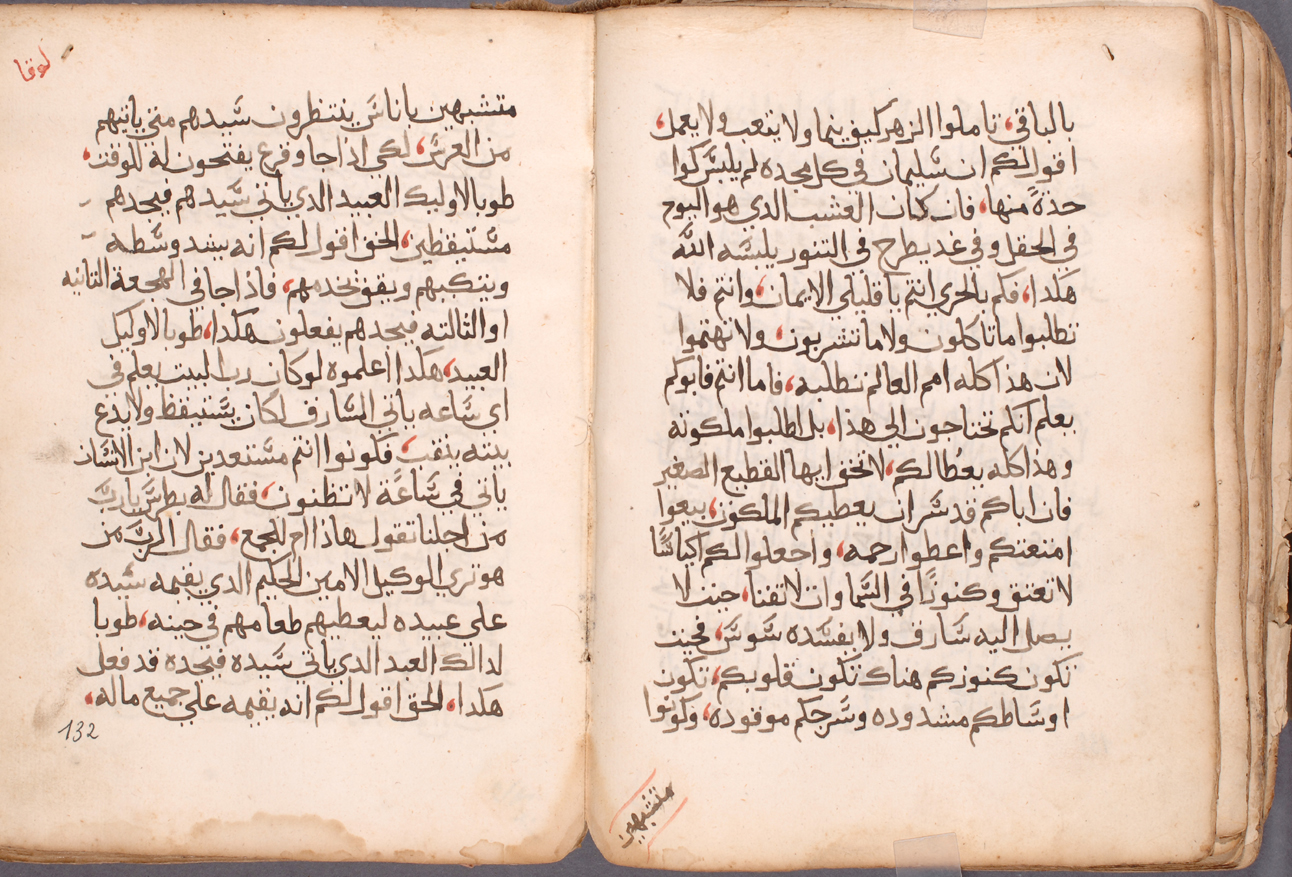 بالباقي، تاملوا الزهر كيف ينما ولا يتعب ولا يعمل،
اقول لكم ان سليمان في كل مجده لم يلبس كوا
حدة منها، فان كان العشب الدي هو اليوم
في الحقل وفي غد يطرح في التنور يلبسه الله
هكدا، فكم بالحري انتم يا قليلي الايمان، وانتم فلا
تطلبوا ما تاكلون ولا ما تشربون، ولا تهتموا
لان هذا كله امم العالم تطلبه، فاما انتم فابوكم
يعلم انكم تحتاجون الي هذا، بل اطلبوا ملكوته
وهذا كله يعطا لكم، لا تخف ايها القطيع الصغير
فان اباكم قد سر ان يعطيكم الملكوت، بيعوا
امتعتكم واعطوا رحمه، واجعلوا لكم اكياسا
لا تعتق وكنوزا في السماوات لا تفنا، حيت لا
يصل اليه سارق ولا يفسده سوس، فحيت
تكون كنوزكم هناك تكون قلوبكم، تكون
اوساطكم مشدوده وسرجكم موقوده، وكونوا
متشبهين
لوقا
متشبهين باناس ينتظرون سيدهم متي ياتيهم
من العرس، لكي اذا جا وقرع يفتحون له للوقت،
طوبا لاوليك العبيد الدي ياتي سيدهم فيجدهم
مستيقظين، الحق اقول لكم انه يشد وسطه
ويتكيهم ويقف يخدمهم، فاذا جا في الهجعة التانيه
او التالته فيجدهم يفعلون هكدا، طوبا لاوليك
العبيد، هكدا اعلموه لو كان رب البيت يعلم في
اي ساعه ياتي السارق لكان يستيقظ ولا يدع
بيته ينقب، فكونوا انتم مستعدين لان ابن الانسان
ياتي في ساعة لا تظنون، فقال له بطرس يا رب
من اجلنا تقول هاذا ام للجمع، فقال الرب من
هو تري الوكيل الامين الحكيم الدي يقيمه سيده
علي عبيده ليعطيهم طعامهم في حينه، طوبا
لدالك العبد الدي ياتي سيده فيجده قد فعل
هكدا، الحق اقول لكم انه يقيمه علي جميع ماله،
132